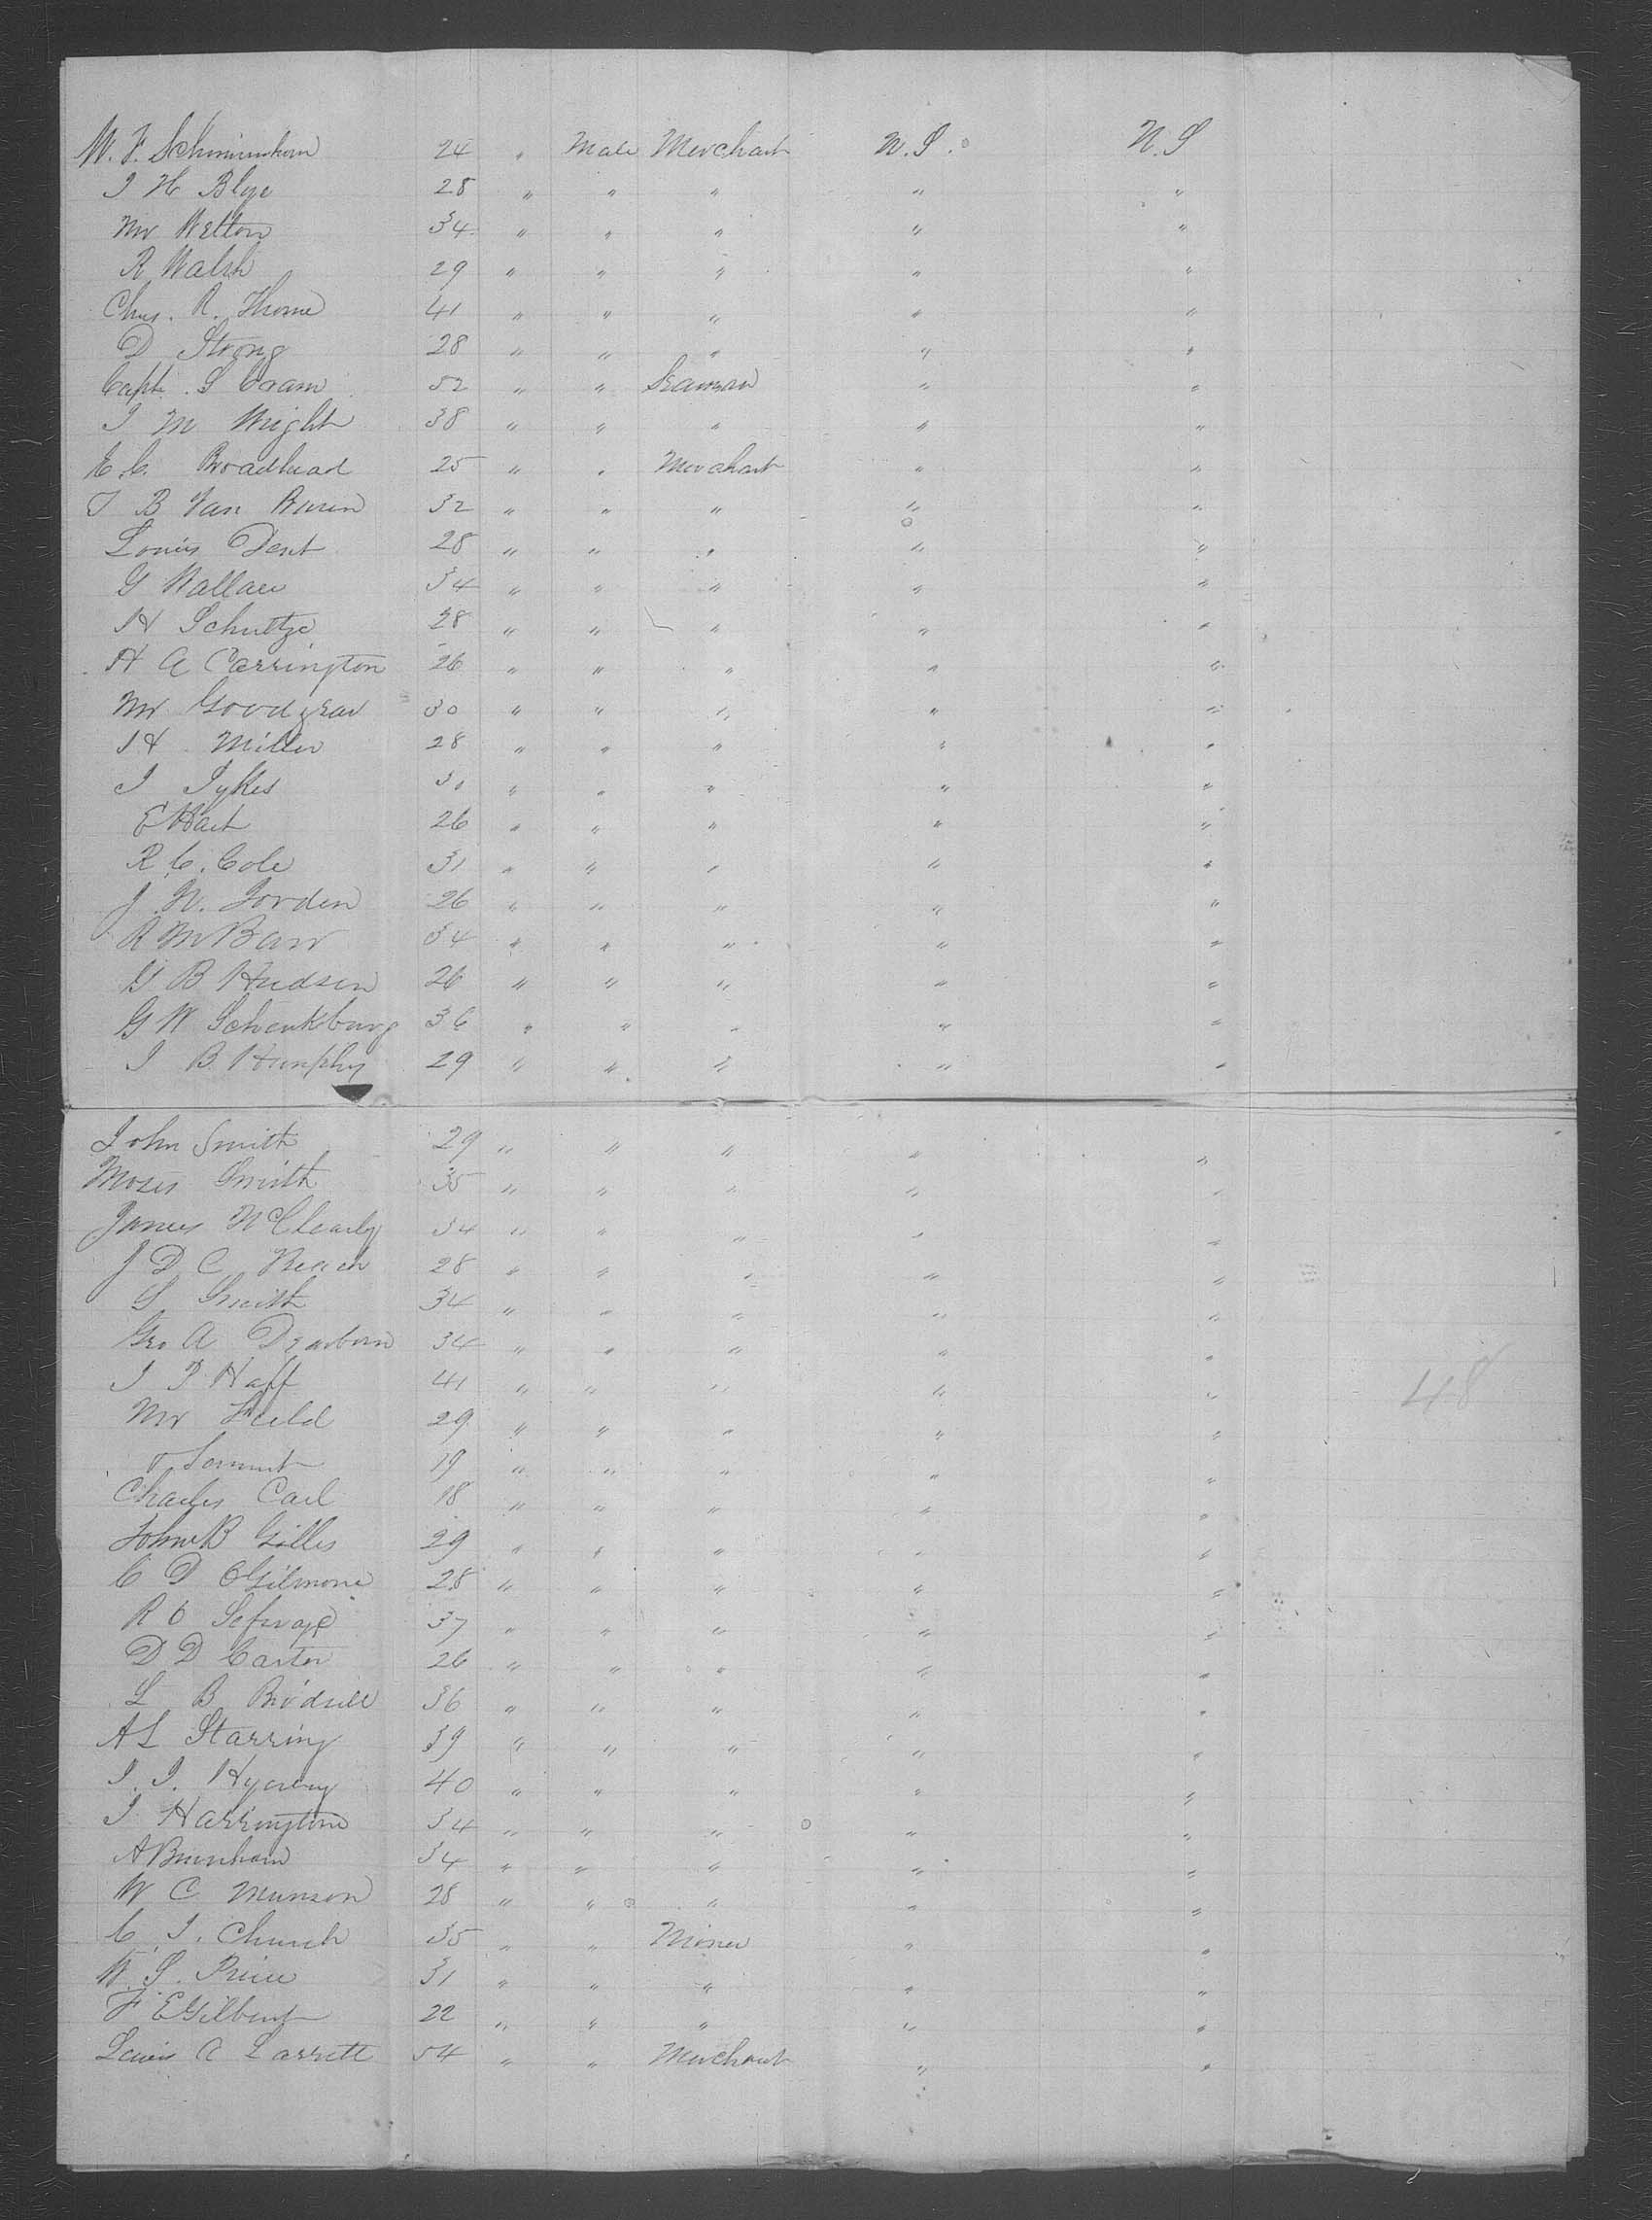 W. F. Schmirmhorn 24 " Male Merchant U.S. U.S
J H Blye 28 " " " " "
Mr Welton 34 " " " " "
R Walsh 29 " " " " "
Chas. R. Thorne 41 " " " " "
D Strong 28 " " " " "
Capt. S Cram 52 " " Seaman " "
J M Wright 38 " " " " "
E. C. Broadhead 25 " " Merchant " "
T B Van Buren 32 " " " " "
Louis Dent 28 " " " " "
G Wallace 34 " " " " "
H Schultze 28 " " " " "
H A Carrington 26 " " " " "
Mr Goodyear 30 " " " " "
H Miller 28 " " " " "
J Sykes 30 " " " " "
E Hart 26 " " " " "
R C. Cole 31 " " " " "
J. W. Jorden 26 " " " " "
R M Barr 34 " " " " "
G B Hudson 26 " " " " "
G W Schenkburg 36 " " " " "
J B Humphy 29 " " " " "
John Smith 29 " " " " "
Moses Smith 35 " " " " "
James McClearly 34 " " " " "
J D C Neach 28 " " " " "
S Smith 34 " " " " "
Geo A Dearborn 34 " " " " "
J P Haff 41 " " " " "
48
Mr Field 29 " " " " "
19 " " " " "
Charles Carl 18 " " " " "
John B Gilles 29 " " " " "
C D Gilmore 28 " " " " "
R O 37 " " " " "
D D Carter 26 " " " " "
L B 36 " " " " "
A L Starring 39 " " " " "
J. J. 40 " " " " "
J Harrington 34 " " " " "
A Burnham 34 " " " " "
W C Munson 28 " " " " "
C. J. Church 35 " " Miner " "
W. S. Price 31 " " " " "
F E Gilbert 22 " " " " "
Lewis A Larrett 54 " " Merchant " "